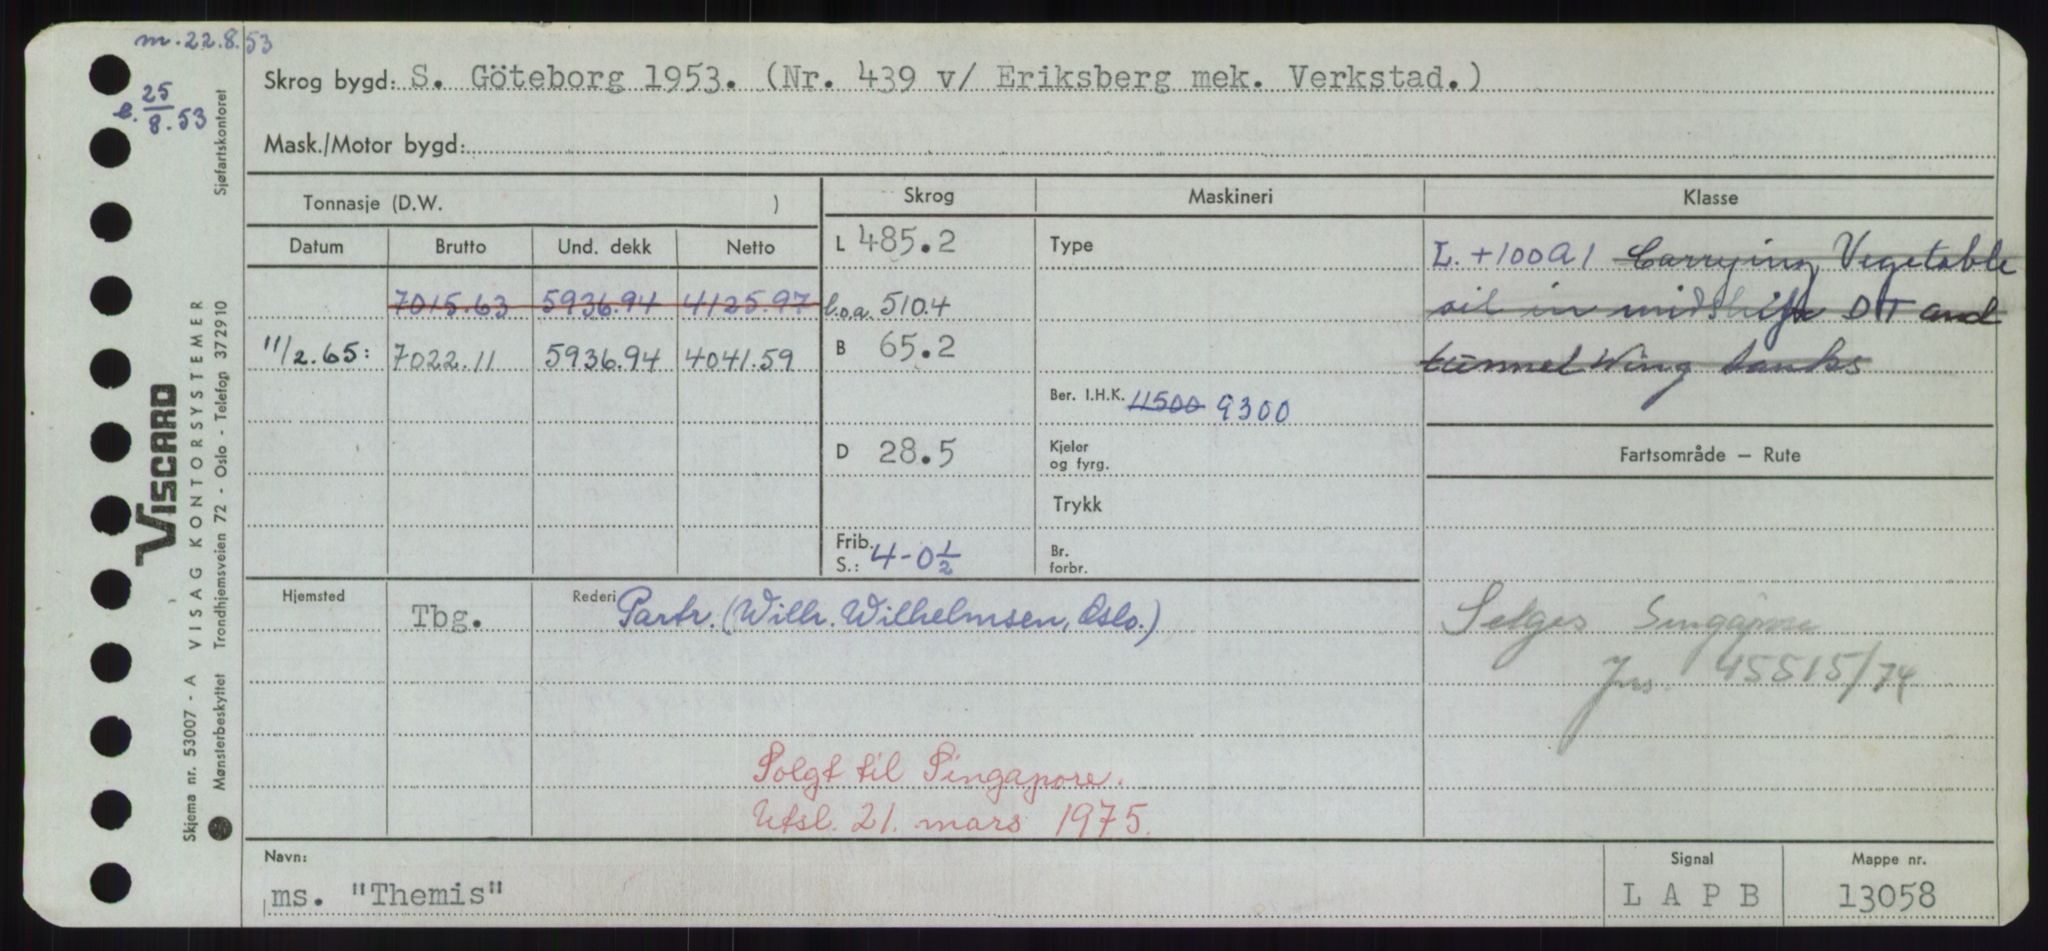 m. 22.8.53
e. 25/8.53
Sjøfartskontoret
Skrog bygd: S. Göteborg 1953. (Nr. 439 v/ Eriksberg mek. Verkstad.)
Mask./Motor bygd:
Tonnasje (D.W. )
Skrog
Maskineri
Klasse
Datum Brutto Und. dekk Netto
7015.63 5936.94 4125.97
11/2.65: 7022.11 5936.94 4041.59
L 485.2
l.o.a. 510.4
B 65.2
D 28.5
Frib.
S.: 4-0 1/2
Type
Ber. I.H.K. 11500 9300
Kjeler
og fyrg.
Trykk
Br.
forbr.
L. +100A1 Carrying Vegetable
oil in midships DT and
tunnel Wing tanks
Fartsområde – Rute
Selges Singapore
Jns. 45515/74
Hjemsted Tbg.
Rederi Partr. (Wilh. Wilhelmsen, Oslo.)
Solgt til Singapore.
Utsl. 21. mars 1975.
Navn:
ms. "Themis"
Signal
L A P B
Mappe nr.
13058
VISCARD
VISAG KONTORSYSTEMER
Skjema nr. 53007 - A
Mønsterbeskyttet Trondhjemsveien 72 - Oslo - Telefon 372910